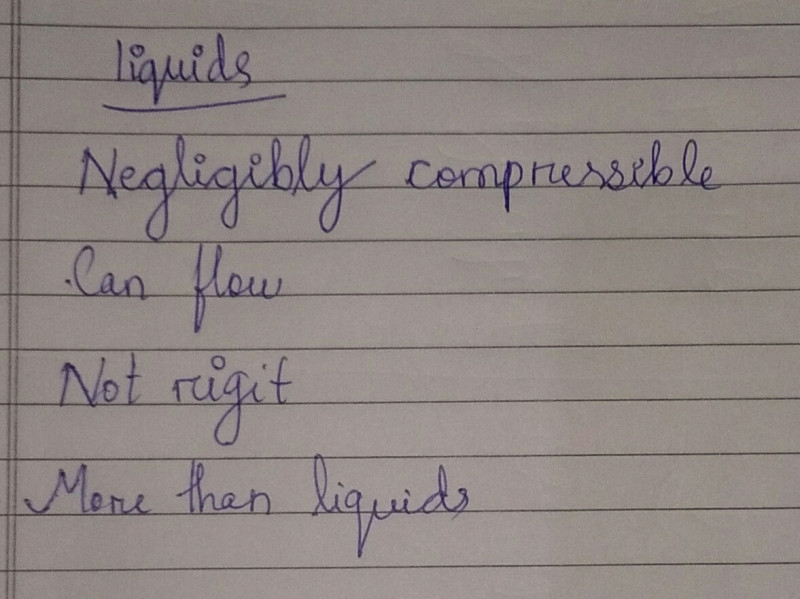 liquids
Negligibly compressible
Can flow
Not rigit
More than liquids